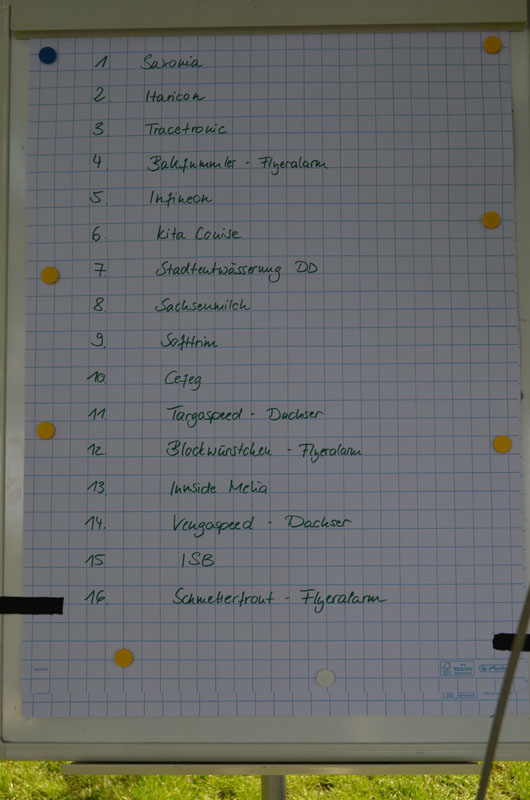 1 Saxonia
2. Haricon
3 Tracetronic
4 Ballfummler - Flyeralarm
5 Infineon
6 Kita Louise
7 Stadtentwässerung DD
8 Sachsenmilch
9. Softtrim
10 Cefeg
11 Targaspeed - Dachser
12 Blockwürstchen - Flyeralarm
13 Innside Melia
14. Vengaspeed - Dachser
15 ISB
16. Schmetterfront - Flyeralarm